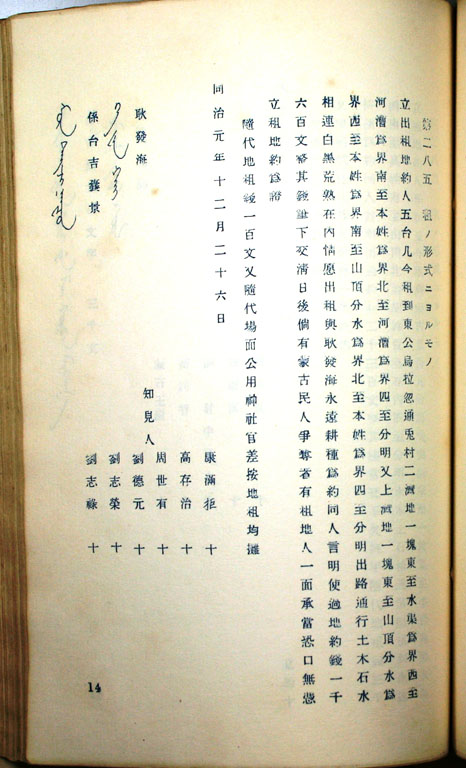 第二八五 租ノ形式ニヨルモノ
立出租地約人五台几今租到東公烏拉忽通兎村二㵎地一塊東至水渠爲界西至
河漕爲界南至本姓爲界北至河漕爲界四至分明又上㵎地一塊東至山頂分水爲
界西至本姓爲界南至山頂分水爲界北至本姓爲界四至分明出路通行土木石水
相連白黑荒熟在內情愿出租與耿發海永遠耕種爲約同人言明使過地約錢一千
六百文整其錢筆下交淸日後倘有蒙古民人爭奪者有租地人一面承當恐口無憑
立租地約爲證
隨代地租錢一百文又隨代場面公用神社官差按地租均攤
同治元年十二月二十六日
知見人
康滿拒 十
高存治 十
周世有 十
劉德元 十
劉志榮 十
劉志祿 十
耿發海
係台吉㐮景
14